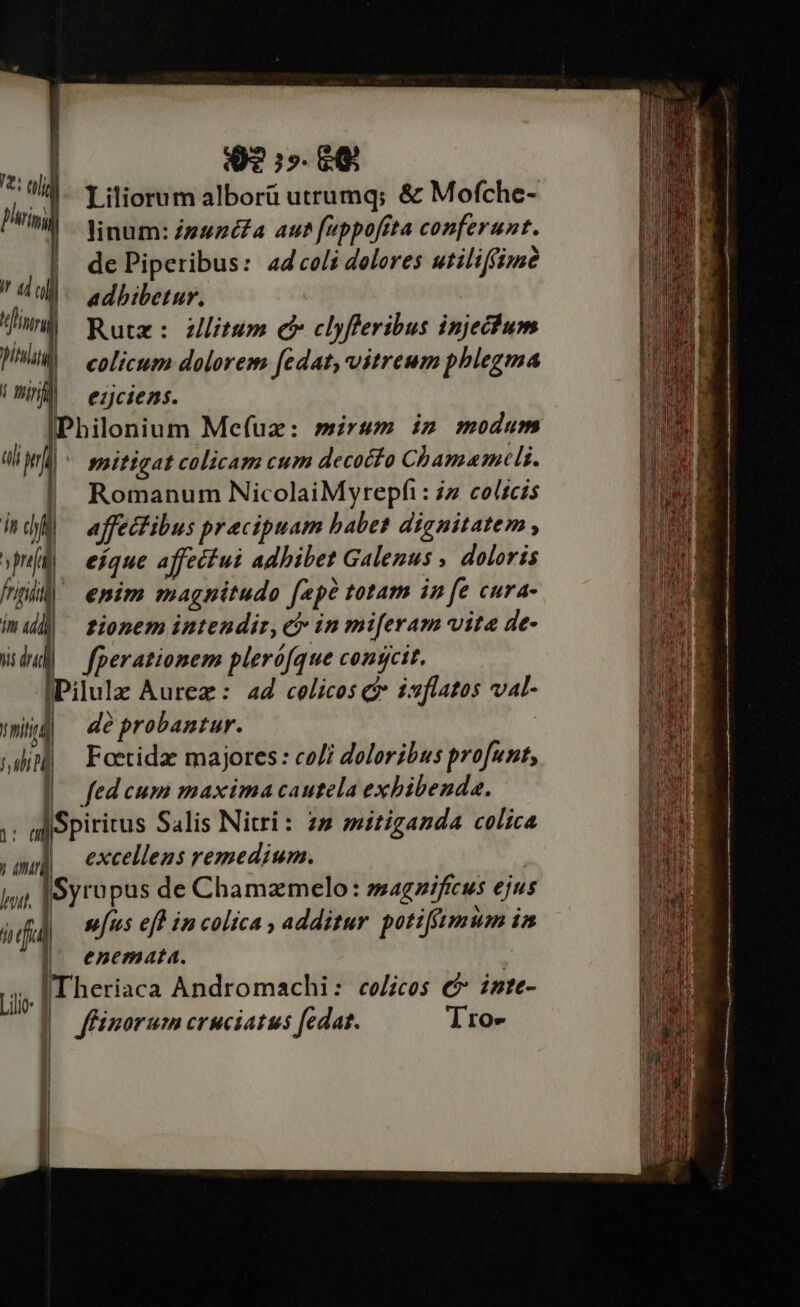 39.
Liliorum alborũ utrumq; & Moſche-
linum: inuncta aut ſuppoſita conferunt.
de Piperibus: ad coli dolores utiliſſimè
adhibetur.
Rutæ: illitum & clyſteribus injectum
colicum dolorem ſedat, vitreum phlegma
eijciens.
Philonium Meſuæ: mirum in modum
mitigat colicam cum decocto Chamæmeli.
Romanum Nicolai Myrepſi: in colicis
affectibus præcipuam habet dignitatem,
eíque affectui adhibet Galenus, doloris
enim magnitudo ſæpè totam in ſe cura-
tionem intendit, & in miſeram vitæ de-
ſperationem plerósque conijcit.
Pilulæ Aureæ: ad colicos & inflatos val-
dè probantur.
Fœtidæ majores: coli doloribus proſunt,
ſed cum maxima cautela exhibendæ.
Spiritus Salis Nitri: in mitiganda colica
excellens remedium.
Syrupus de Chamæmelo: magnificus ejus
uſus eſt in colica, additur potiſſimùm in
enemata.
Theriaca Andromachi: colicos & inte-
ſtinorum cruciatus ſedat.
Tro-